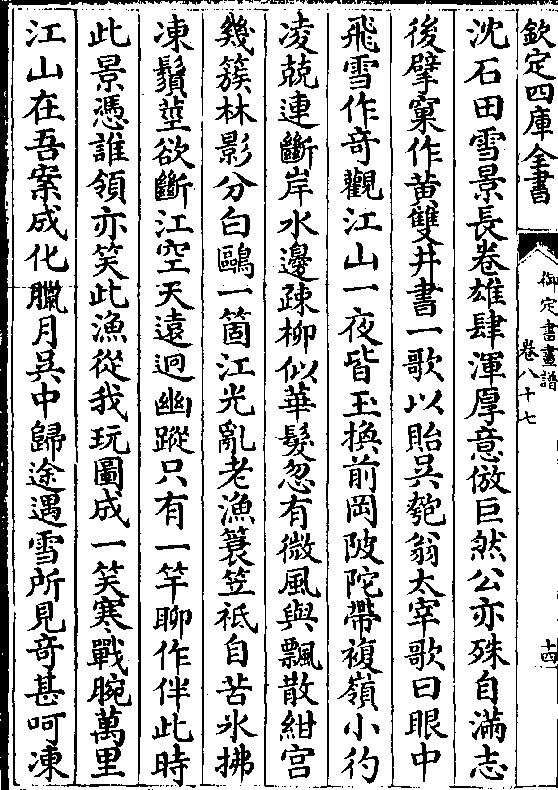 欽定四庫全書
御定書畫譜
卷八十七
十四
沈石田雪景長卷雄肆渾厚意倣巨然公亦殊自滿志
後擘窠作黄雙井書一歌以貽吳匏翁太宰歌曰眼中
飛雪作奇觀江山一夜皆玉換前岡陂陀帶複嶺小彴
凌兢連斷岸水邊疎柳似華髮忽有微風與飄散紺宫
幾簇林影分白鷗一箇江光亂老漁蓑笠祇自苦氷拂
凍鬚莖欲斷江空天遠迥幽蹤只有一竿聊作伴此時
此景憑誰領亦笑此漁從我玩圖成一笑寒戰腕萬里
江山在吾案成化臘月吳中歸途遇雪所見奇甚呵凍